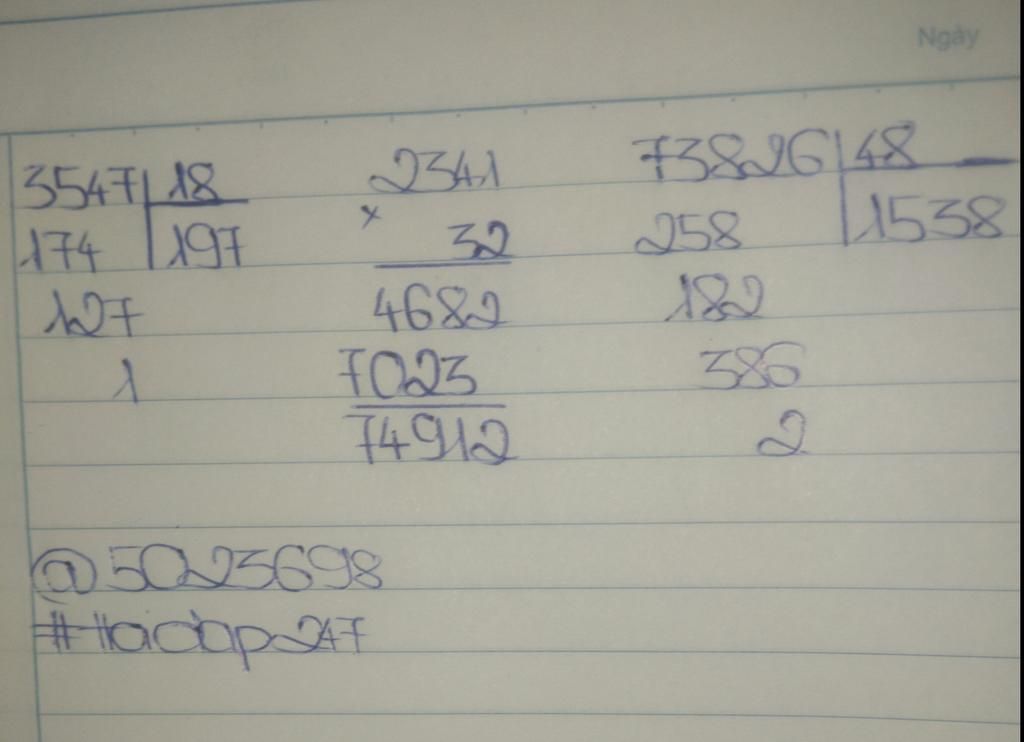 Ngày
3547 18 2341 73826 48
174 197 x 32 258 1538
127 4682 182
1 7023 386
74912 2
@5023698
#Hadap247